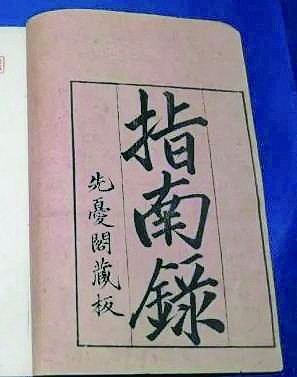 指南錄
先憂閣藏板